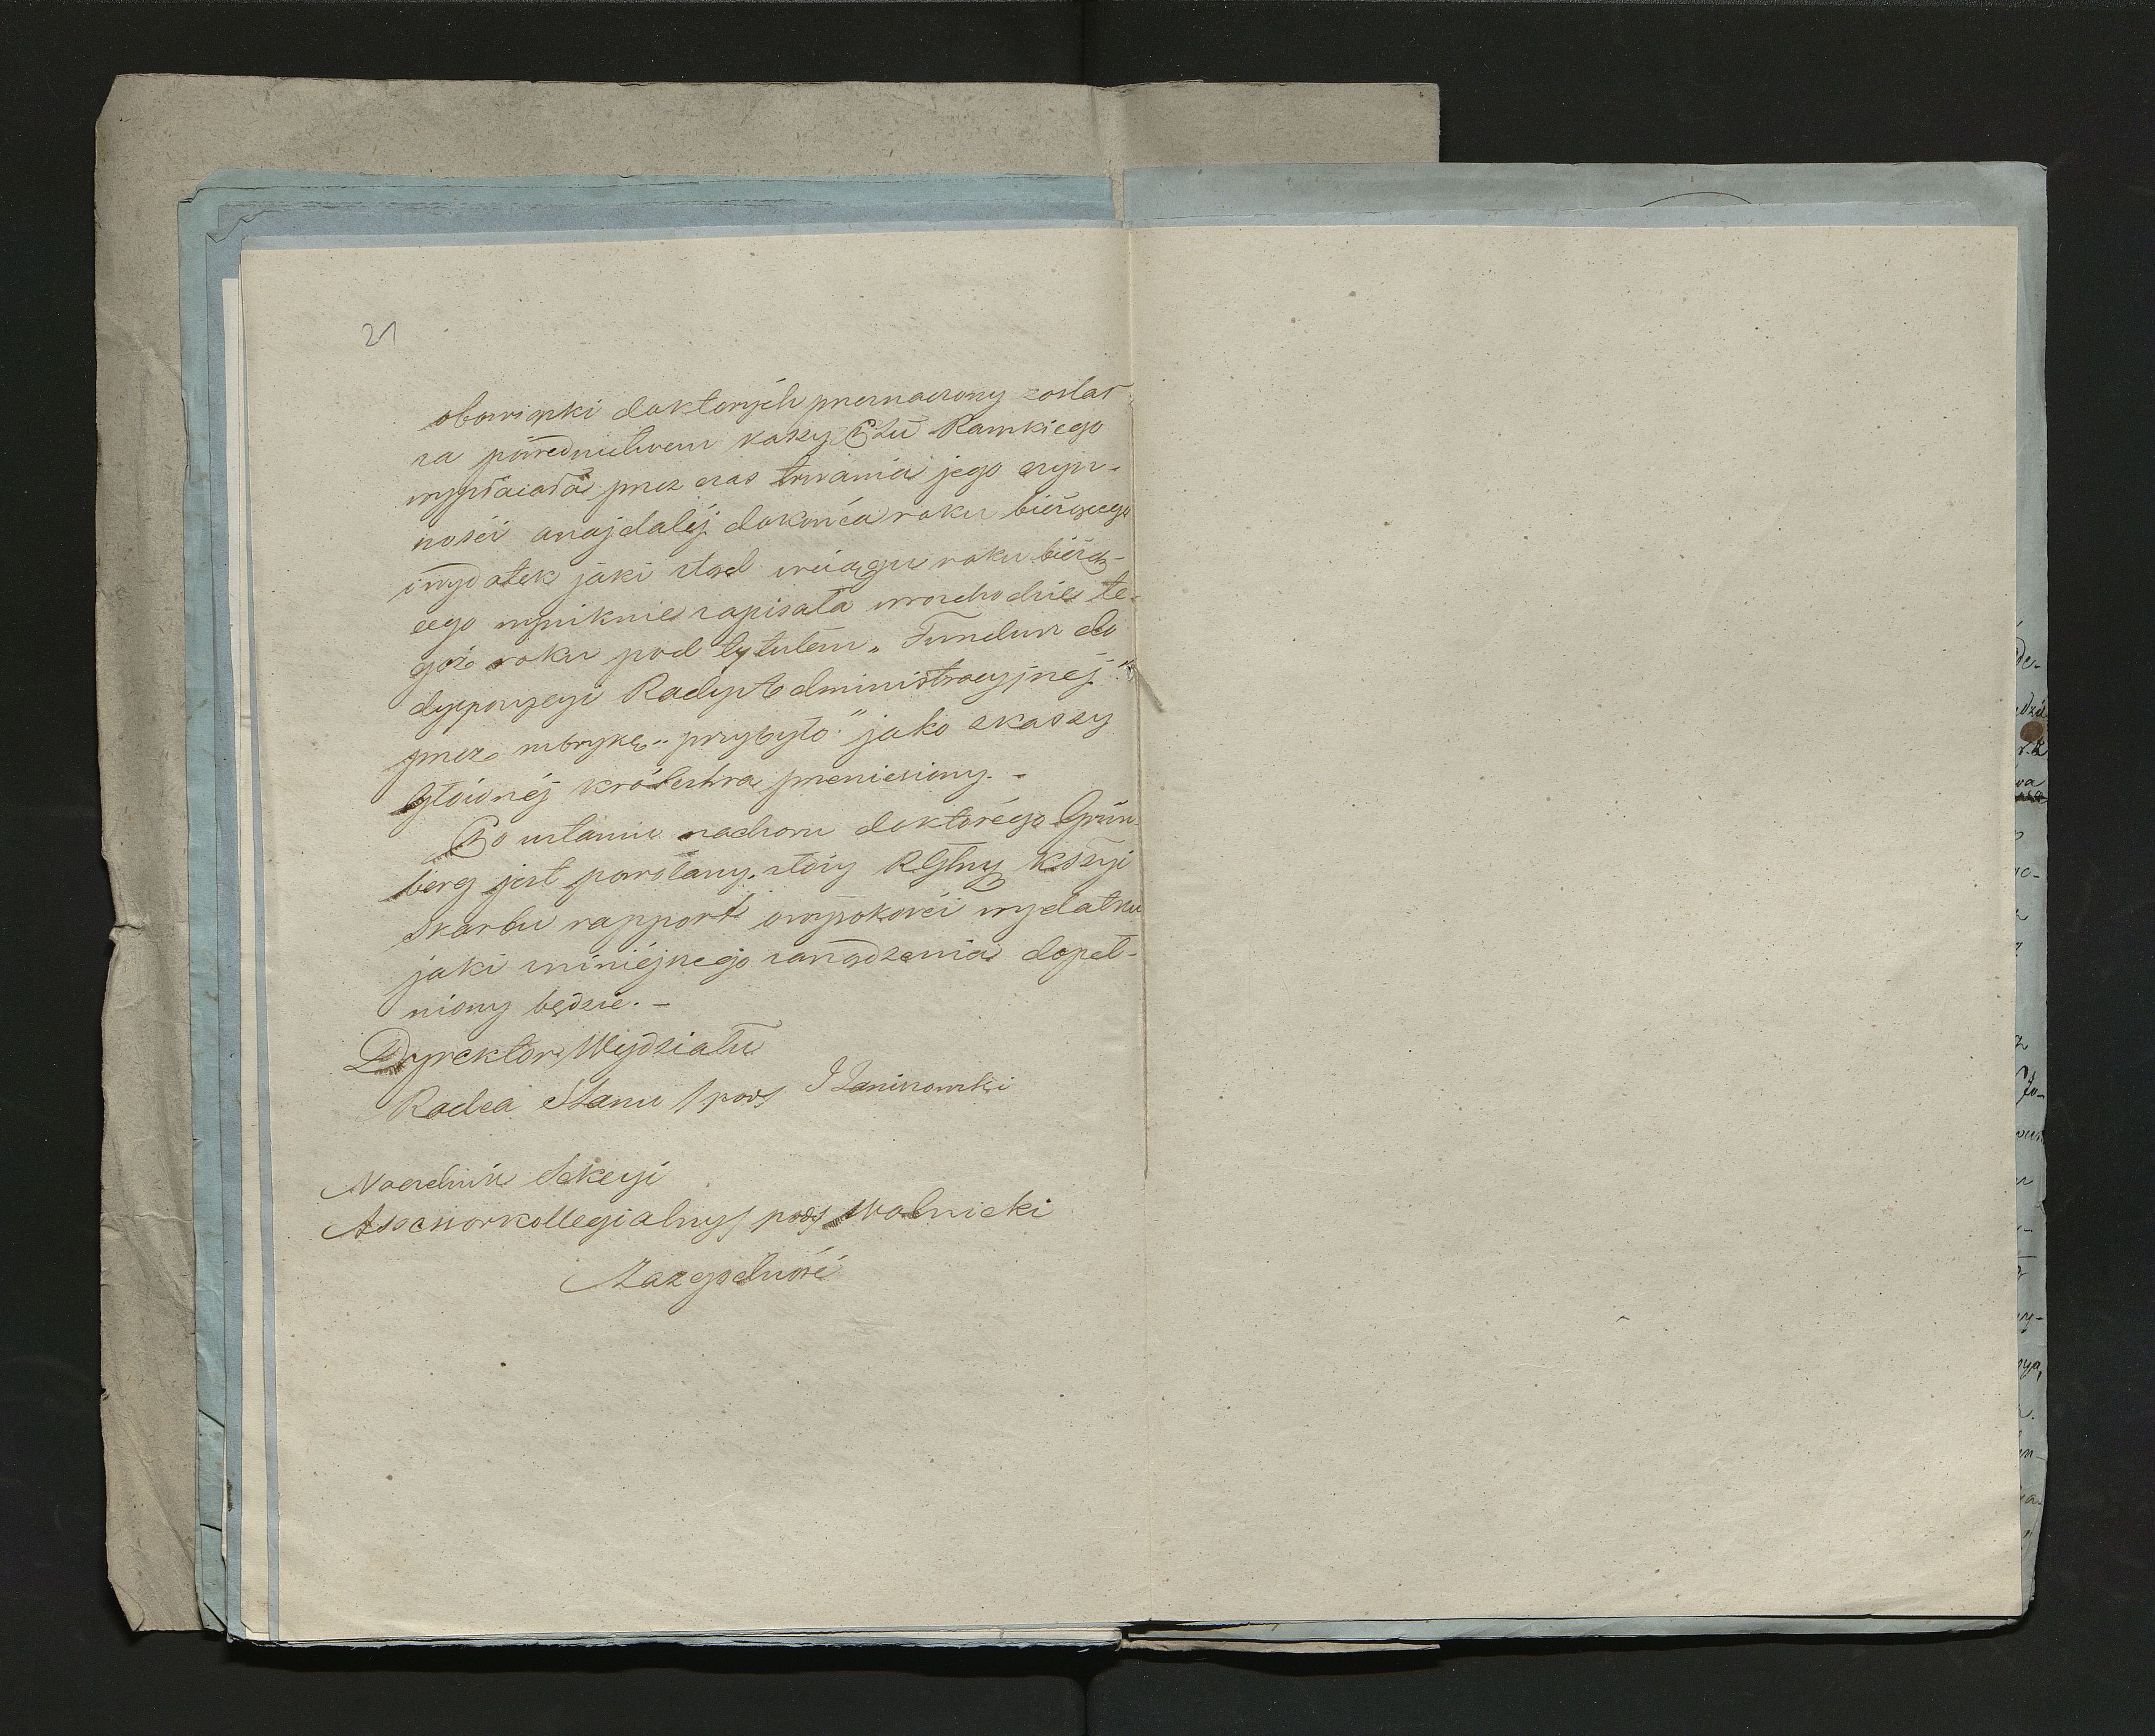 21
obowiązki do których przeznaczony został
za pośrednictwem kassy Ptu Rawskiego
wypłacała przez czas trwania jego czyn-
ności a najdaléj do końca roku bieżącego
i wydatek jaki ztąd w ciągu roku bieżą-
cego wyniknie zapisała w rozchodzie te-
goż roku pod tytułem „Fundusz do
dyspozycyi Rady Administracyjnéj"
przez rubrykę „przybyło" jako z kassy
Głównéj królestwa przeniesiony. -
Po ustaniu nadzoru do którego Grün-
berg jest powołany, złoży Kssyi
Skarbu rapport o wysokości wydatku
jaki z niniejszego zarządzenia dopeł-
niony będzie. -
Dyrektor Wydziału
Radca Stanu / pods /
Naczelnik Sekcyi
Assessor kollegialny / pods / Wolnicki
Za zgodność